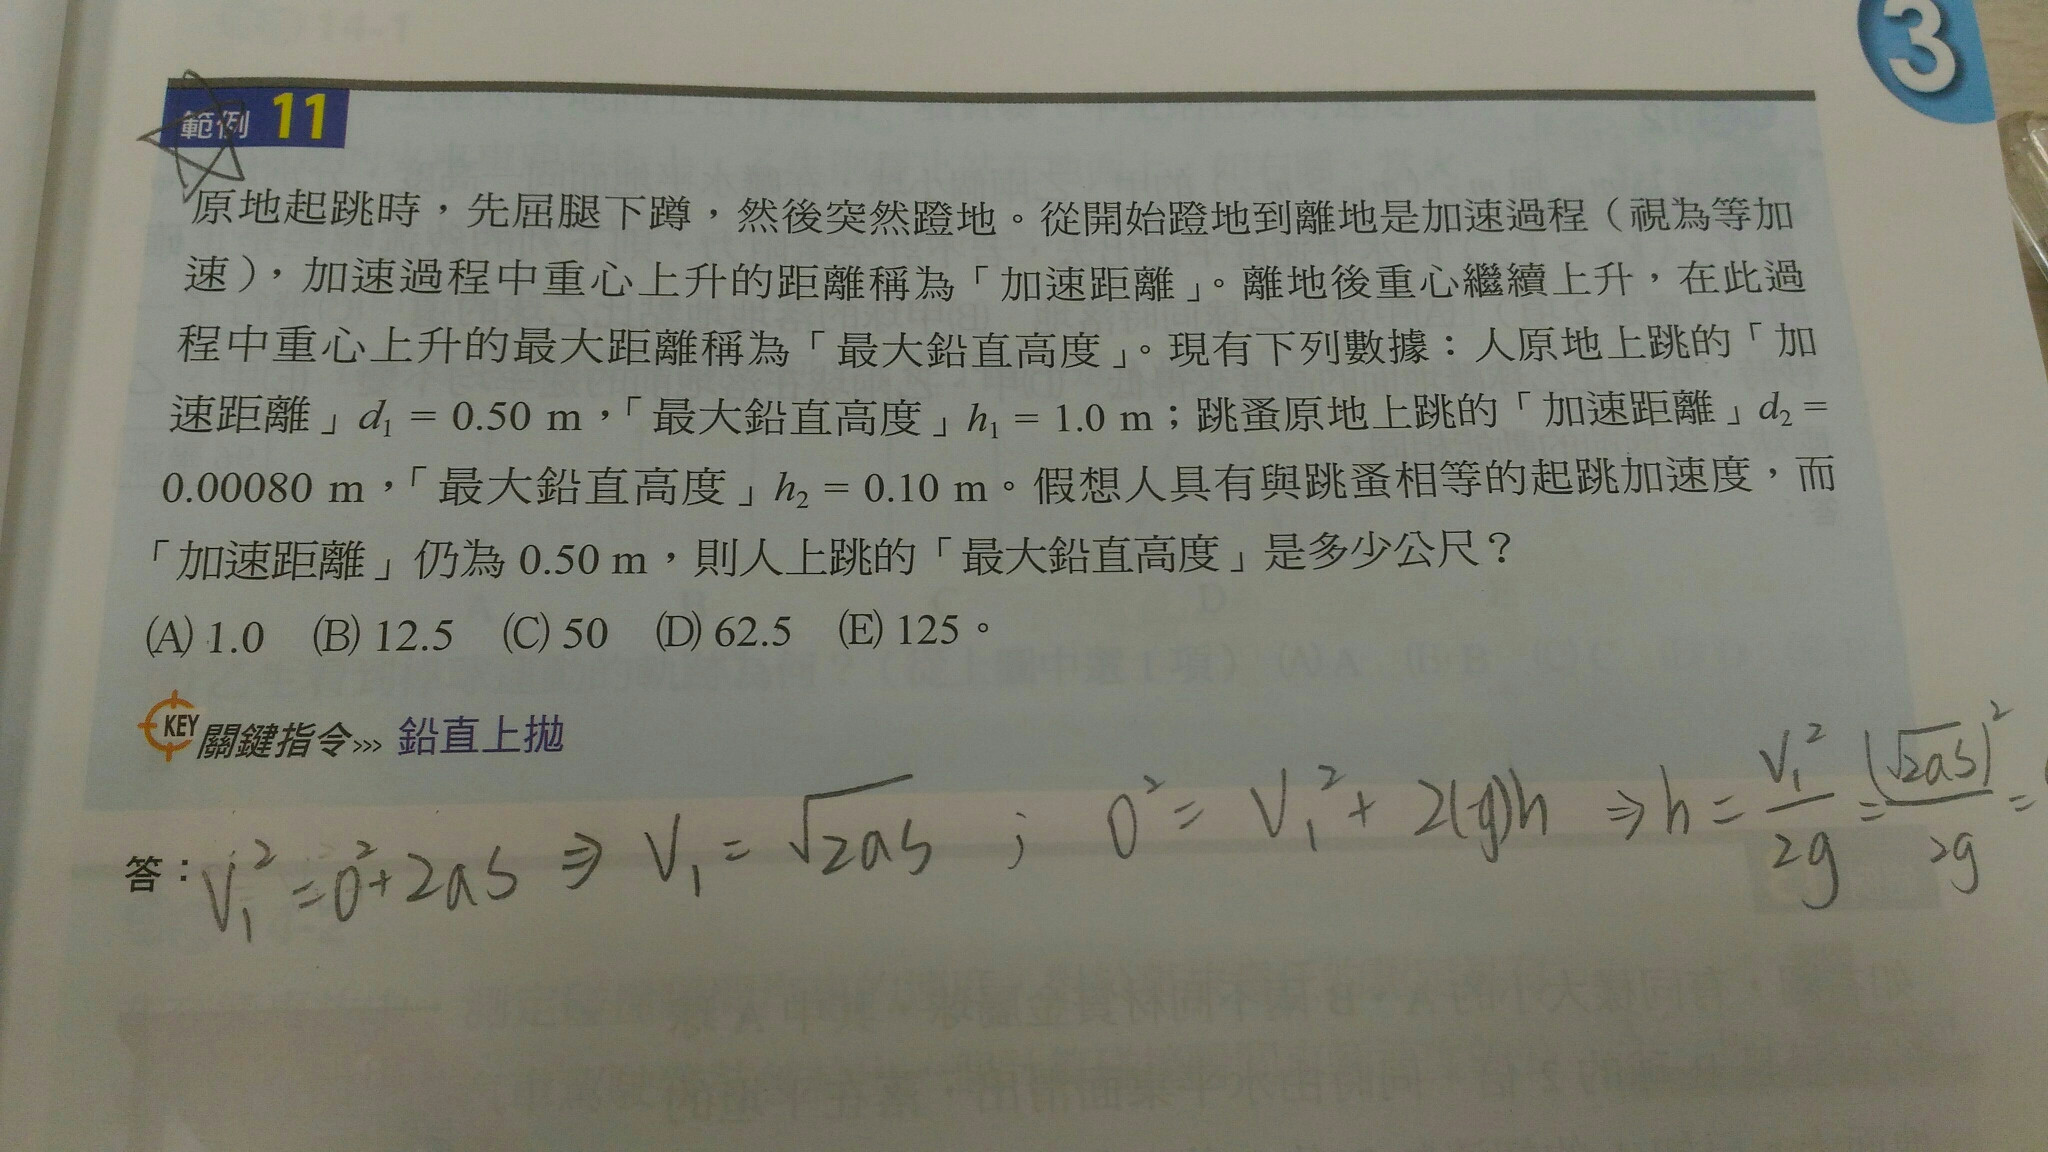 3
範例 11
原地起跳時，先屈腿下蹲，然後突然蹬地。從開始蹬地到離地是加速過程（視為等加
速），加速過程中重心上升的距離稱為「加速距離」。離地後重心繼續上升，在此過
程中重心上升的最大距離稱為「最大鉛直高度」。現有下列數據：人原地上跳的「加
速距離」d₁ = 0.50 m，「最大鉛直高度」h₁ = 1.0 m；跳蚤原地上跳的「加速距離」d₂ =
0.00080 m，「最大鉛直高度」h₂ = 0.10 m。假想人具有與跳蚤相等的起跳加速度，而
「加速距離」仍為 0.50 m，則人上跳的「最大鉛直高度」是多少公尺？
(A) 1.0 (B) 12.5 (C) 50 (D) 62.5 (E) 125。
KEY 關鍵指令>>> 鉛直上拋
答：V₁² = 0² + 2as ⇒ V₁ = √2as ; 0² = V₁² + 2(g)h ⇒ h = V₁²/2g = (√2as)²/2g =